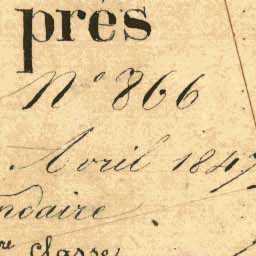 près
N° 866
Avril 1847
ndaire
re classe